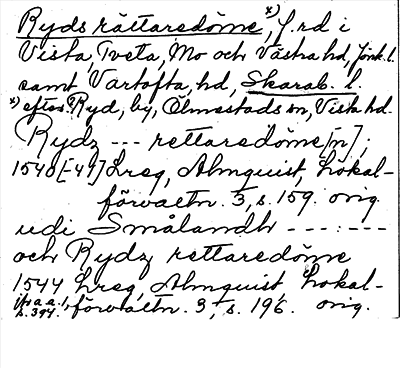 Ryds rättaredöme, x) f.rd i
Vista, Tveta, Mo och Västra hd, Jönk. l.
samt Vartofta, hd, Skarab. l.
x) efter Ryd, by, Ölmestads sn, Vista hd.
Rydz --- rettaredöme[n];
1540[-41] Lreg, Almquist, Lokal-
förvaltn. 3, s. 159. orig.
udi Smålandh ---:---
och Rydz rettaredöme
1544 Lreg, Almquist, Lokal-
förvaltn. 3, s. 196. orig.
s. 394.